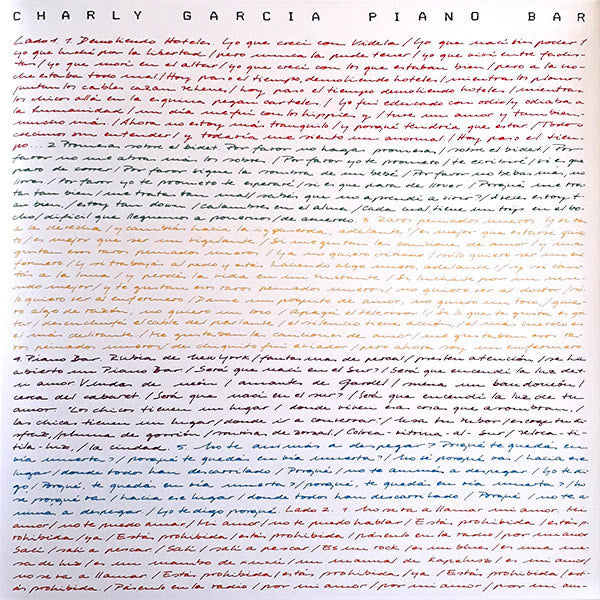 CHARLY GARCIA PIANO BAR
Lado 1 1. Demoliendo Hoteles. Yo que crecí con Videla / Yo que nací sin poder /
yo que luché por la libertad / pero nunca la pude tener / yo que viví entre fachis-
tas / yo que morí en el altar / yo que crecí con los que estaban bien / pero a la no-
che estaba todo mal / Hoy paso el tiempo, demoliendo hoteles / mientras los planos
juntan los cables cazan rehenes / hoy paso el tiempo demoliendo hoteles / mientras
los chicos allá en la esquina pegan carteles / Yo fui educado con odio / y odiaba a
la humanidad / un día me fui con los hippies y / tuve un amor y tambien
mucho más / Ahora no estoy más tranquilo / y porqué tendría que estar / Todos
crecimos sin entender / y todavía me siento un anormal / Hoy paso el tiem-
po... 2 Promesas sobre el bidet. Por favor no hagas promesas / sobre el bidet / Por
favor no me abras más los sobres / Por favor yo te prometo / te escribiré / si es que
paro de correr / Por favor sigue la sombra de mi bebé / Por favor no bebas más, no
llores / Por favor yo te prometo te esperaré / si es que para de llover / Porqué me tra-
tan tan bien / me tratan tan mal / sabés que no aprendí a vivir? / A veces estoy t-
an bien / estoy tan down / Calambres en el alma / Cada cual tiene un trip en el bo-
cho / difícil que lleguemos a ponernos / de acuerdo 3 Raros peinados nuevos. Y si vas
a la derecha / y cambiás hacia la izquierda, adelante / es mejor que estarse quie-
to / es mejor que ser un vigilante / Si me gustan las canciones de amor / y me
gustan esos raros peinados nuevos / Ya no quiero criticar / sólo quiero ser un en-
fermero / y si trabajás al pedo y estás haciendo algo nuevo, adelante / y si can-
tás a la luna / y perdés la vida en un instante / Si luchaste por un mu-
ndo mejor / y te gustan esos raros peinados nuevos / no quiero ver al doctor / só-
lo quiero ver al enfermero / Dame un poquito de amor, no quiero un toco / quie-
ro algo de razón, no quiero un loco / Apagá el televisor / Si lo que te gusta es gri-
tar / desenchufá el cable del parlante / el silencio tiene acción / el más cuerdo es
el más delirante / Me gustan las canciones de amor / me gustan esos ra-
ros peinados nuevos / de chiquito fui aviador / pero ahora soy un enfermero
4 Piano Bar. Rubia de New York / fantasma de percal / presten atención / se ha
abierto un Piano Bar / Será que nací en el Sur? / Será que encendí la luz de t-
u amor Viudas de neón / amantes de Gardel / suena un bandoneón /
cerca del cabaret / Será que nací en el sur? / Será que encendí la luz de tu
amor. Los chicos tienen un lugar / donde viven esas cosas que asombran /
las chicas tienen un lugar / donde ir a conversar / usa tu rubor / escoge tu di-
sfraz / plumas de gorrión / sonrisas de zorzal / Colorea vitrina al sur / sedosa ti-
tila luz / la ciudad. 5 No te animás a despegar? Porqué te quedás en
vía muerta? / Porqué te quedás en vía muerta? / No sé porqué vas / hacia ese
lugar / donde todos han descarrilado / Porqué / no te animás a despegar. Yo te di-
go / Porqué, te quedás en vía muerta? / porqué te quedás en vía muerta? / No
sé porqué vas / hacia ese lugar / donde todos han descarrilado / Porqué / no te a-
nimás a despegar / Yo te digo porqué Lado 2. 1 No se va a llamar mi amor. Mi
amor / no te puedo amar / Mi amor / no te puedo hablar / Estás prohibida / estás p-
rohibida / ya / Estás prohibida / estás prohibida / Páselo en la radio / por mi amor
Salí / salí a pescar / Salí / salí a pescar / Es un rock / es un blues / es una me-
sa de luz / es un mambo de / un manual de Kapelusz / es mi amor /
no se va a llamar / Estás prohibida / estás prohibida / ya / Estás prohibida / est-
ás prohibida / Páselo en la radio / por mi amor / por mi amor / por mi am-